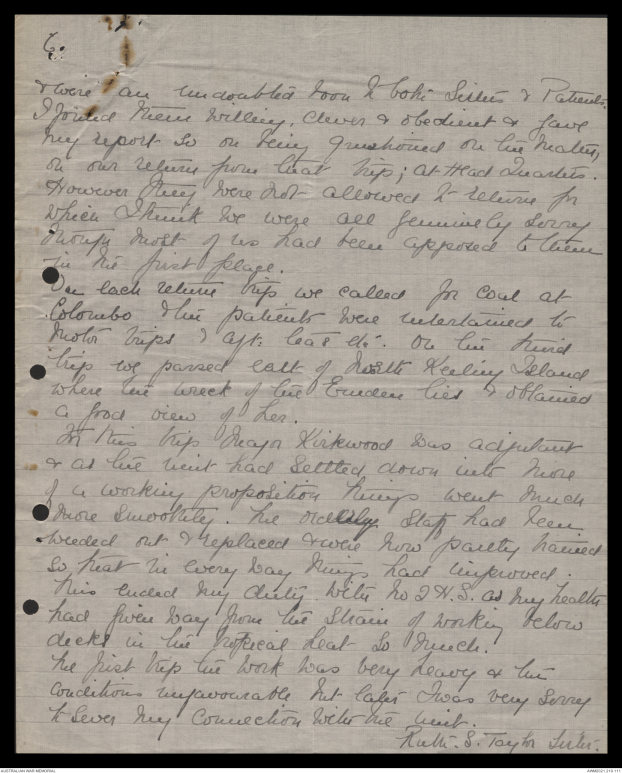 6.
& were an undoubted boon to both Sisters & Patients.
I found them willing, clever & obedient & gave
my report so on being questioned on the matter,
on our return from that trip, at Head Quarters.
However they were not allowed to return for
which I think we were all genuinely sorry
though most of us had been opposed to them
in the first place.
On each return trip we called for coal at
Colombo & the patients were entertained to
Motor trips & aft: teas etc. On the third
trip we passed east of North Keeling Island
where the wreck of the Emden lies & obtained
a good view of her.
In this trip Major Kirkwood was adjutant
& as the unit had settled down into more
of a working proposition things went much
more smoothly. The orderly staff had been
weeded out & replaced & were now partly trained
so that in every way things had improved.
This ended my duty with No 2 H.S. as my health
had given way from the strain of working below
decks in the tropical heat so much.
The first trip the work was very heavy & the
conditions unfavourable but later I was very sorry
to sever my connection with the unit.
Ruth. S. Taylor Sister.
AUSTRALIAN WAR MEMORIAL